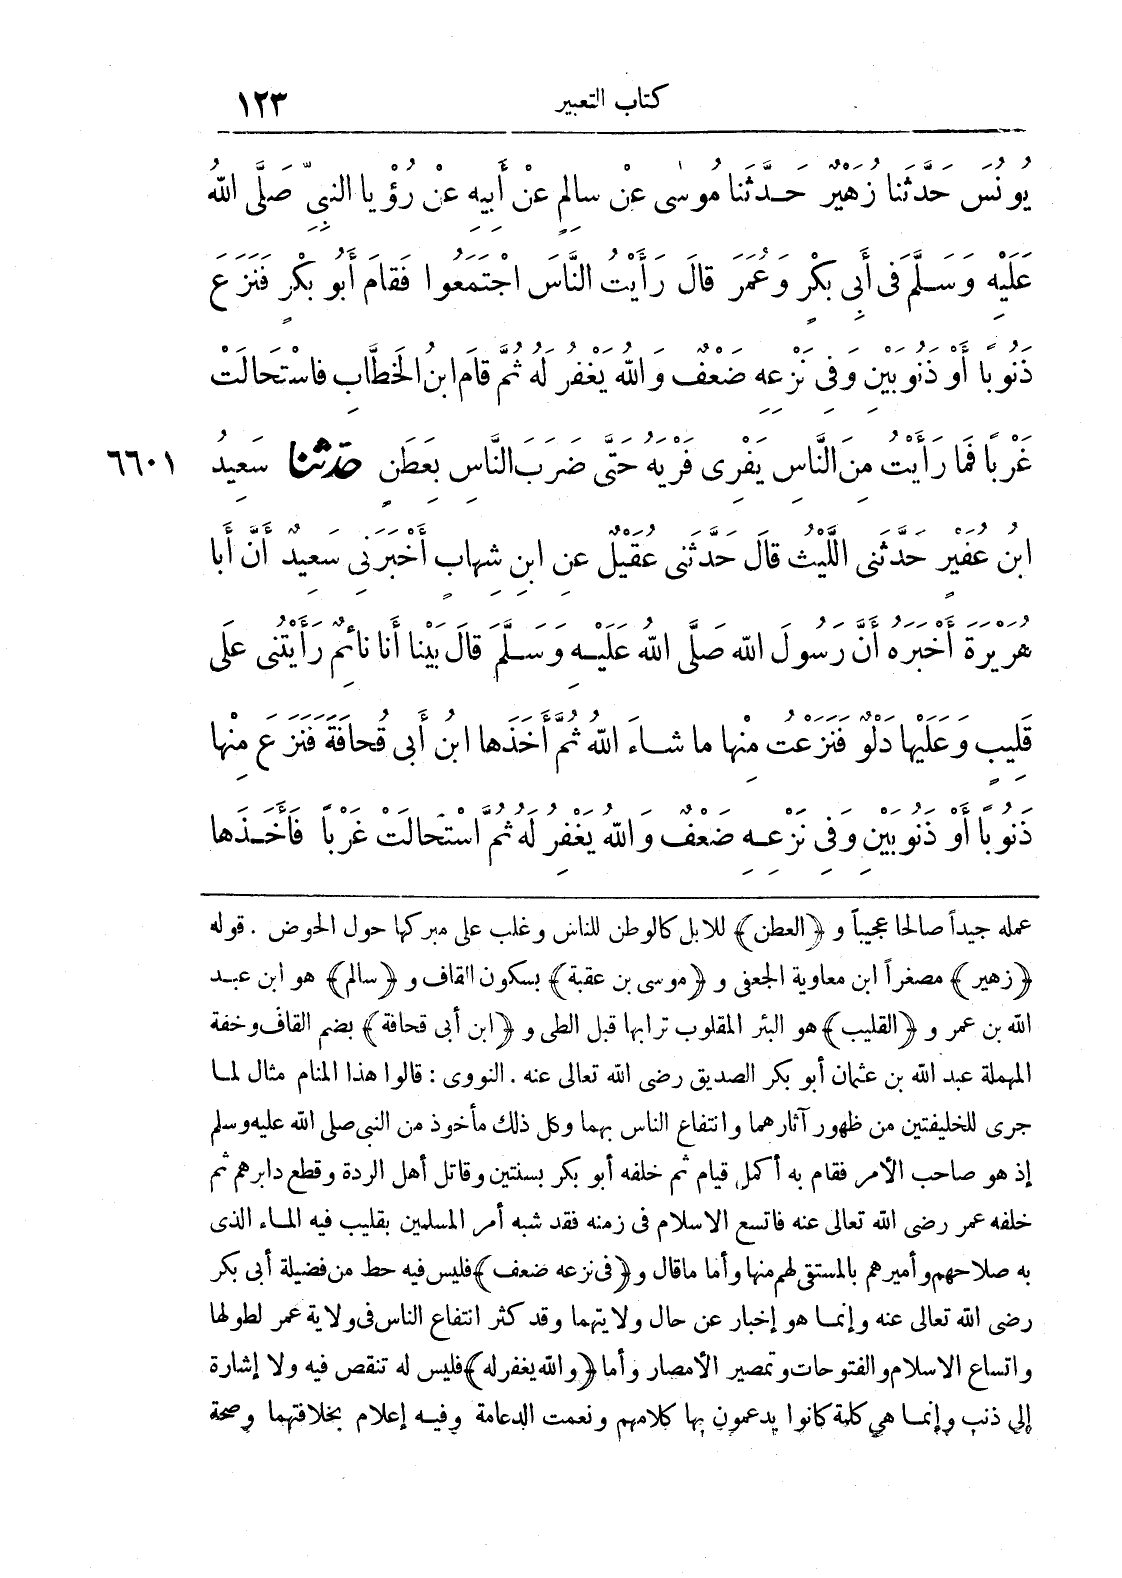 كتاب التعبير ١٢٣
يُونُسَ حَدَّثَنا زُهَيْرٌ حَدَّثَنا مُوسٰى عَنْ سالِمٍ عَنْ أَبِيهِ عَنْ رُؤْيا النبِيِّ صَلَّى اللهُ
عَلَيْهِ وَسَلَّمَ فى أَبِى بَكْرٍ وَعُمَرَ قالَ رَأَيْتُ النَّاسَ اجْتَمَعُوا فَقامَ أَبُو بَكْرٍ فَنَزَعَ
ذَنُوبًا أَوْ ذَنُوبَيْنِ وَفِى نَزْعِهِ ضَعْفٌ وَاللهُ يَغْفِرُ لَهُ ثُمَّ قامَ ابنُ الخَطَّابِ فاسْتَحالَتْ
غَرْبًا فَمَا رَأَيْتُ مِنَ النَّاسِ يَفْرِى فَرْيَهُ حَتَّى ضَرَبَ النَّاسِ بِعَطَنٍ حَدّثنا سَعِيدُ ٦٦٠١
ابنُ عُفَيْرٍ حَدَّثَنى اللَّيْثُ قالَ حَدَّثَنى عُقَيْلٌ عنِ ابنِ شِهابٍ أَخْبَرَنِى سَعِيدٌ أَنَّ أَبا
هُرَيْرَةَ أَخْبَرَهُ أَنَّ رَسُولَ اللهِ صَلَّى اللهُ عَلَيْهِ وَسَلَّمَ قالَ بَيْنا أَنا نائِمٌ رَأَيْتُنى عَلَى
قَلِيبٍ وَعَلَيْها دَلْوٌ فَنَزَعْتُ مِنْها ما شاءَ اللهُ ثُمَّ أَخَذَها ابنُ أَبى قُحافَةَ فَنَزَعَ مِنْها
ذَنُوبًا أَوْ ذَنُوبَيْنِ وَفِى نَزْعِهِ ضَعْفٌ وَاللهُ يَغْفِرُ لَهُ ثُمَّ اسْتَحالَتْ غَرْبًا فَأَخَذَها
عمله جيداً صالحا عجيباً و ﴿العطن﴾ للابل كالوطن للناس وغلب على مبركها حول الحوض . قوله
﴿زهير﴾ مصغراً ابن معاوية الجعفى و ﴿موسى بن عقبة﴾ بسكون القاف و ﴿سالم﴾ هو ابن عبد
الله بن عمر و ﴿القليب﴾ هو البئر المقلوب ترابها قبل الطى و ﴿ابن أبى قحافة﴾ بضم القاف وخفة
المهملة عبد الله بن عثمان أبو بكر الصديق رضى الله تعالى عنه . النووى : قالوا هذا المنام مثال لما
جرى للخليفتين من ظهور آثارهما وانتفاع الناس بهما وكل ذلك مأخوذ من النبى صلى الله عليه وسلم
إذ هو صاحب الأمر فقام به أكمل قيام ثم خلفه أبو بكر بسنتين وقاتل أهل الردة وقطع دابرهم ثم
خلفه عمر رضى الله تعالى عنه فاتسع الاسلام فى زمنه فقد شبه أمر المسلمين بقليب فيه الماء الذى
به صلاحهم وأميرهم بالمستقى لهم منها وأما ما قال و ﴿فى نزعه ضعف﴾ فليس فيه حط من فضيلة أبى بكر
رضى الله تعالى عنه وإنما هو إخبار عن حال ولايتهما وقد كثر انتفاع الناس فى ولاية عمر لطولها
واتساع الاسلام والفتوحات وتمصير الأمصار وأما ﴿والله يغفر له﴾ فليس له تنقص فيه ولا إشارة
إلى ذنب وإنما هي كلمة كانوا يدعمون بها كلامهم ونعمت الدعامة وفيه إعلام بخلافتهما وصحة